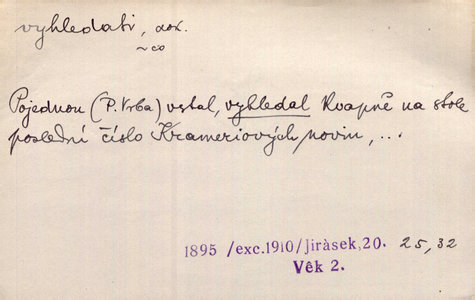 vyhledati, dok.
~co
Pojednou (P. Vrba) vstal, vyhledal kvapně na stole
poslední číslo Krameriových novin, ...
1895 /exc.1910/Jiràsek,20. 25, 32
Vêk 2.